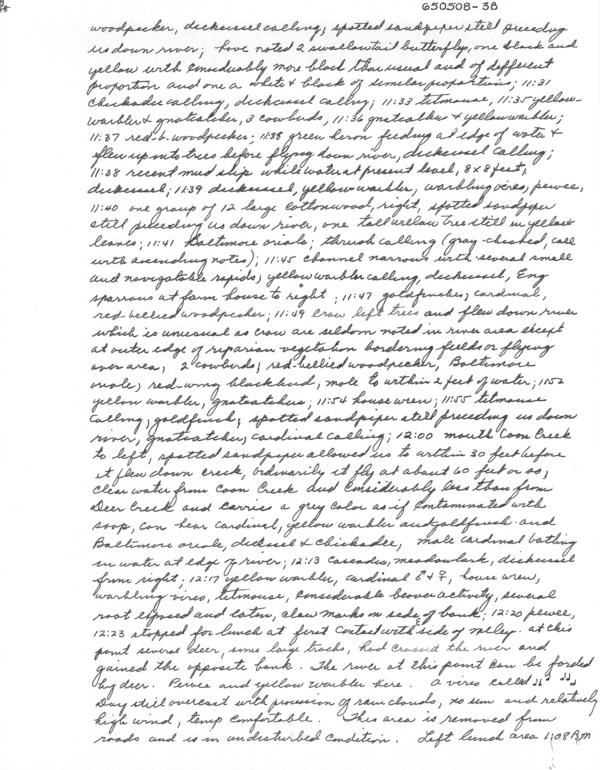 650508-3B
woodpecker, dickcissel calling; spotted sandpiper still preceding
us down river; have noted 2 swallowtail butterflys, one black and
yellow with considerably more black than usual and of different
proportion and one a white & black of similar proportions; 11:31
chickadee calling, dickcissel calling; 11:33 titmouse, 11:35 yellow-
warbler & gnatcatcher, 3 cowbirds, 11:36 gnatcatcher & yellow warbler;
11:37 red-b. woodpecker; 11:38 green heron feeding at edge of water &
flew up into trees before flying down river, dickcissel calling;
11:38 recent mud slip while water at present level, 8x8 feet,
dickcissel; 11:39 dickcissel, yellow warbler, warbling vireo, pewee,
11:40 one group of 12 large cottonwood, right, spotted sandpiper
still preceding us down river, one tall willow tree still in yellow
leaves; 11:41 Baltimore oriole; thrush calling (gray-cheeked, call
with ascending notes); 11:45 channel narrows with several small
and navigatable rapids; yellow warbler calling, dickcissel, Eng
sparrows at farm house to right; 11:47 goldfinches, cardinal,
red-bellied woodpecker; 11:49 crow left trees and flew down river
which is unusual as crow are seldom noted in river area except
at outer edge of riparian vegetation bordering fields or flying
over area; 2 cowbirds; red-bellied woodpecker, Baltimore
oriole, red-wing blackbird, mole to within 2 feet of water; 11:52
yellow warbler, gnatcatcher; 11:54 house wren; 11:55 titmouse
calling, goldfinch, spotted sandpiper still preceding us down
river, gnatcatcher, cardinal calling; 12:00 mouth Coon Creek
to left, spotted sandpiper allowed us to within 30 feet before
it flew down creek, ordinarily it fly at about 60 feet or so;
clear water from Coon Creek and considerably less than from
Deer Creek and carries a grey color as if contaminated with
soap, can hear cardinal, yellow warbler and goldfinch and
Baltimore oriole, dickcissel & chickadee, male cardinal bathing
in water at edge of river; 12:13 cascades, meadowlark, dickcissel
from right; 12:17 yellow warbler, cardinal ♂ & ♀, house wren,
warbling vireo, titmouse, considerable beaver activity, several
root exposed and eaten, claw marks on side of bank; 12:20 pewee,
12:23 stopped for lunch at first contact with side of valley. at this
point several deer, some large tracks, had crossed the river and
gained the opposite bank. The river at this point can be forded
by deer. Pewee and yellow warbler here. A vireo called
Day still overcast with procession of rain clouds, no sun and relatively
high wind, temp comfortable. This area is removed from
roads and is in undisturbed condition. Left lunch area 1:08 P.M